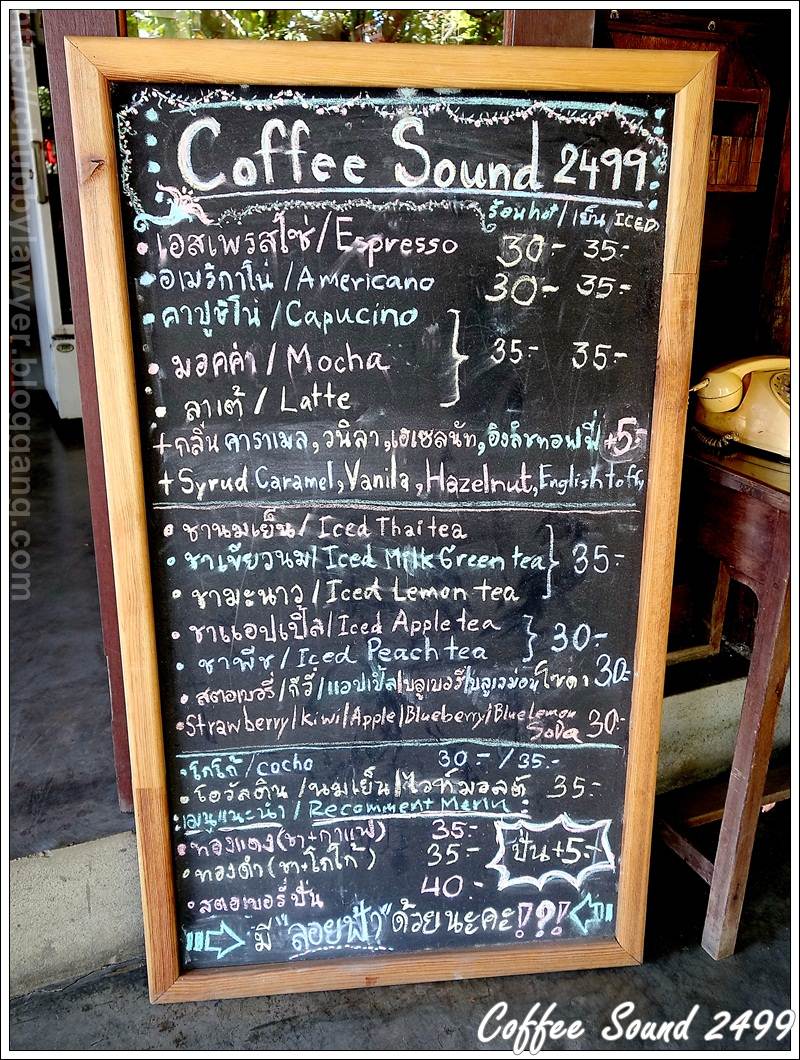 Coffee Sound 2499
ร้อนhot / เย็น ICED
เอสเพรสโซ่/Espresso 30.- 35.-
อเมริกาโน่ /Americano 30.- 35.-
คาปูชิโน่ /Capucino
มอคค่า / Mocha 35.- 35.-
ลาเต้ / Latte
+กลิ่น คาราเมล,วนิลา,เฮเซลนัท,อิงลิชทอฟฟี่ +5.-
+Syrud Caramel,Vanila,Hazelnut,English toffy
ชานมเย็น/ Iced Thai tea
ชาเขียวนม/Iced Milk Green tea 35.-
ชามะนาว / Iced Lemon tea
ชาแอปเปิ้ล/Iced Apple tea
ชาพีช/Iced Peach tea 30.-
สตอเบอรี่ /กีวี่ /แอปเปิ้ล/บลูเบอรี่/บลูเลม่อน โซดา 30.-
Strawberry/kiwi/Apple/Blueberry/Blue Lemon Soda 30.-
โกโก้ /cocho 30.- / 35.-
โอวัลติน /นมเย็น/ไวท์มอลต์ 35.-
เมนูแนะนำ / Recomment Menu :
ทองแดง(ชา+กาแฟ) 35.-
ทองดำ(ชา+โกโก้) 35.-
ปั่น+5.-
สตอเบอรี่ ปั่น 40.-
มี "ลอยฟ้า"ด้วยนะคะ!?!
Coffee Sound 2499
bylawyer.bloggang.com